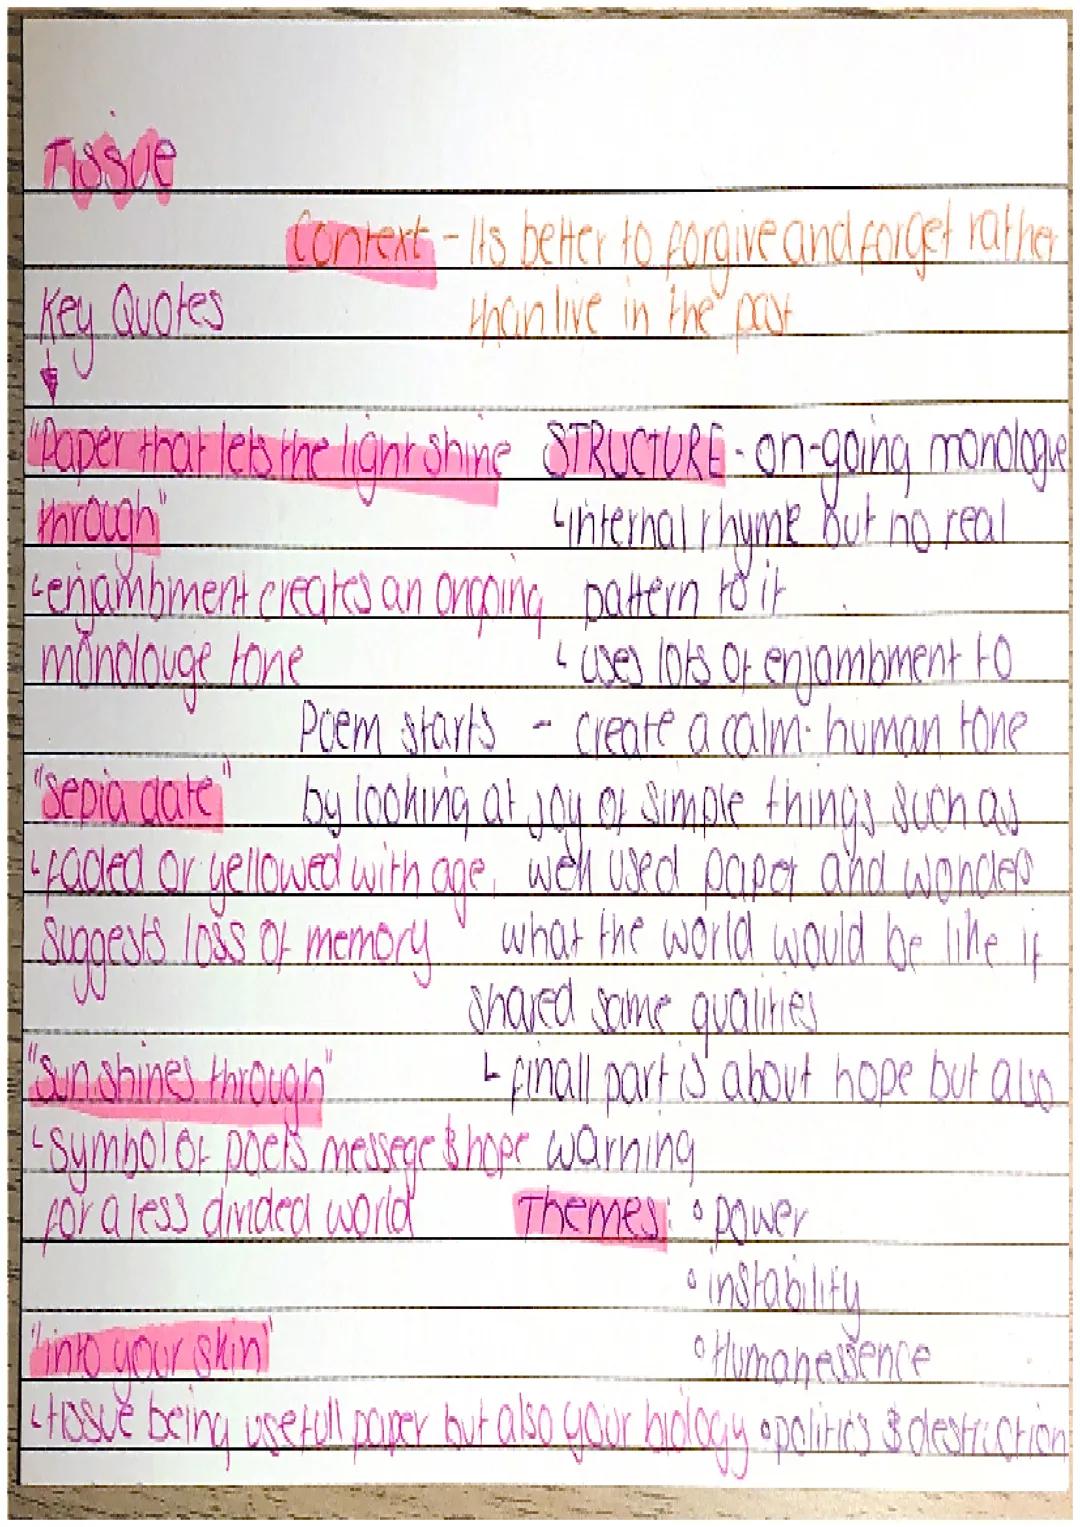 Tissue
Context - Its better to forgive and forget rather
than live in the past
Key Quotes
"Paper that lets the light shine
through"
↳enjambment creates an ongoing
monolouge tone
"sepia date"
↳faded or yellowed with age,
suggests loss of memory
"Sun shines through"
↳symbol of poets messege & hope
for a less divided world
"into your skin"
↳tissue being usefull paper but also your biology
STRUCTURE - on-going monologue
↳internal rhyme but no real
pattern to it
↳uses lots of enjambment to
- create a calm human tone
Poem starts
by looking at joy of simple things such as
well used paper and wonders
what the world would be like if
shared same qualities
↳finall part is about hope but also
warning
Themes: ∘ power
∘ instability
∘ Human essence
∘ politics & destruction